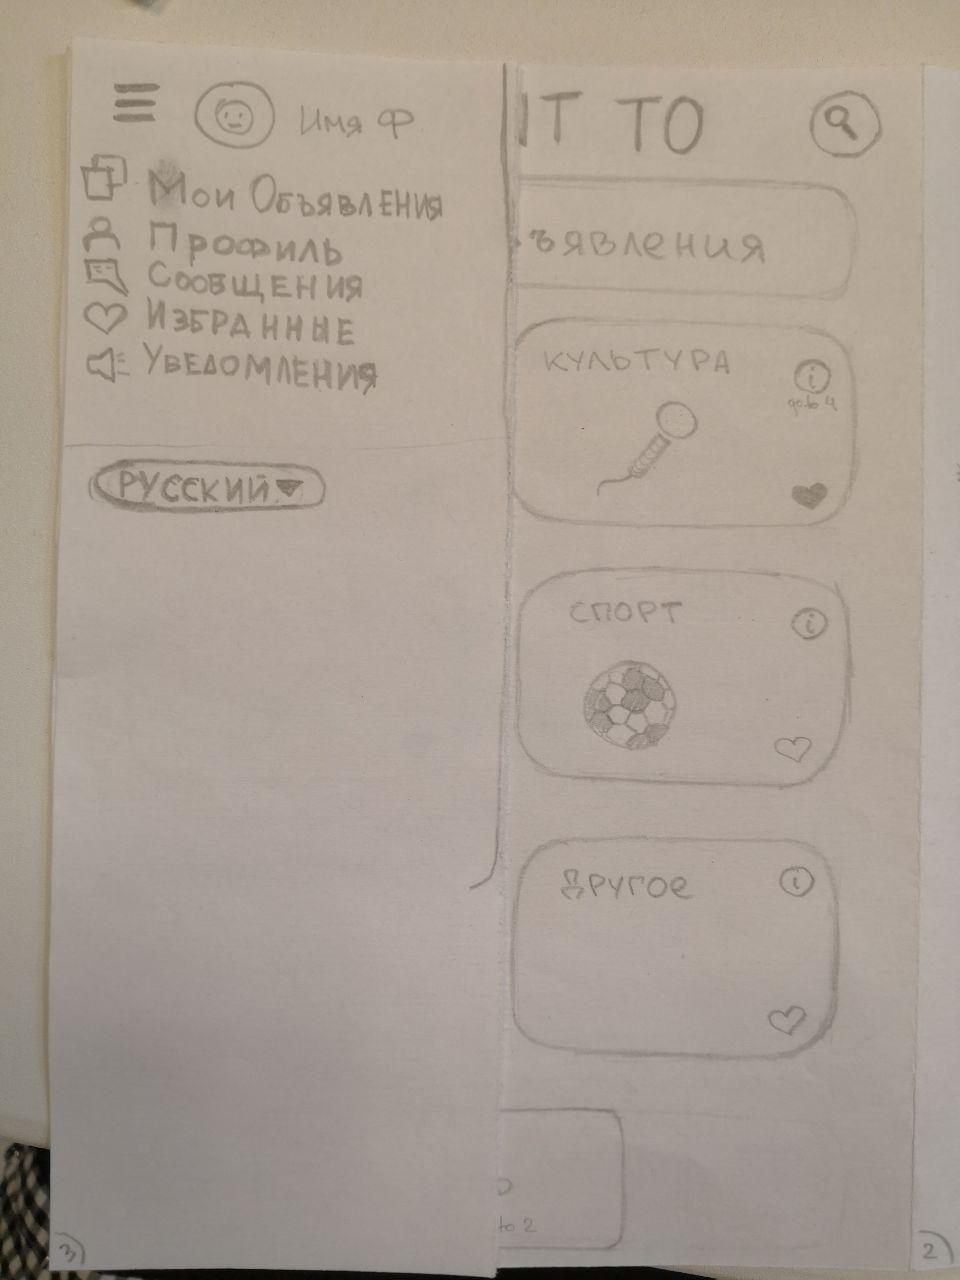 Имя Ф
Мои Объявления
Профиль
Сообщения
Избранные
Уведомления
РУССКИЙ
IT TO
ъявления
КУЛЬТУРА
i
go to 4
СПОРТ
i
Другое
i
to 2
3
2